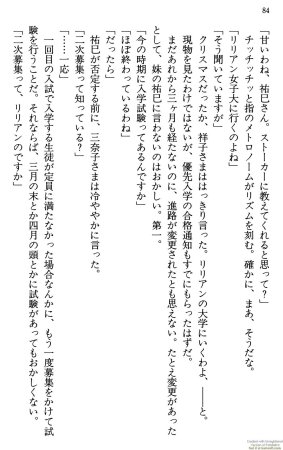 84
「甘いわね、祐巳さん。ストーカーに教えてくれると思って？」
チッチッチッと指のメトロノームがリズムを刻む。確かに、まあ、そうだな。
「リリアン女子大に行くのよね」
「そう聞いていますが」
クリスマスだったか、祥子さまははっきり言った。リリアンの大学にいくわよ、――と。
現物を見たわけではないが、優先入学の合格通知もすでにもらったはずだ。
まだあれから三ヶ月も経たないのに、進路が変更されたとも思えない。たとえ変更があった
として、妹の祐巳に言わないのはおかしい。第一。
「今の時期に入学試験ってあるんですか」
「ほぼ終わっているわね」
「だったら」
祐巳が否定する前に、三奈子さまは冷ややかに言った。
「二次募集って知っている？」
「……一応」
一回目の入試で入学する生徒が定員に満たなかった場合なんかに、もう一度募集をかけて試
験を行うことだ。それならば、三月の末とか四月の頭とかに試験があってもおかしくない。
「二次募集って、リリアンのですか」